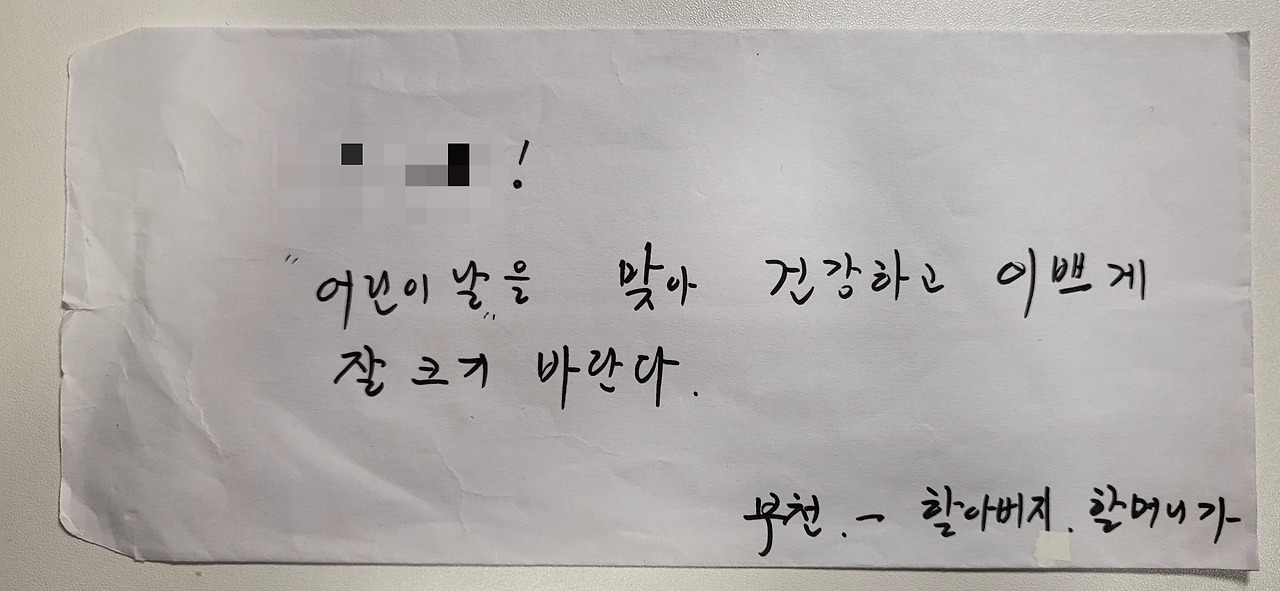 !
"어린이 날"을 맞아 건강하고 이쁘게
잘 크기 바란다.
부천. - 할아버지. 할머니가